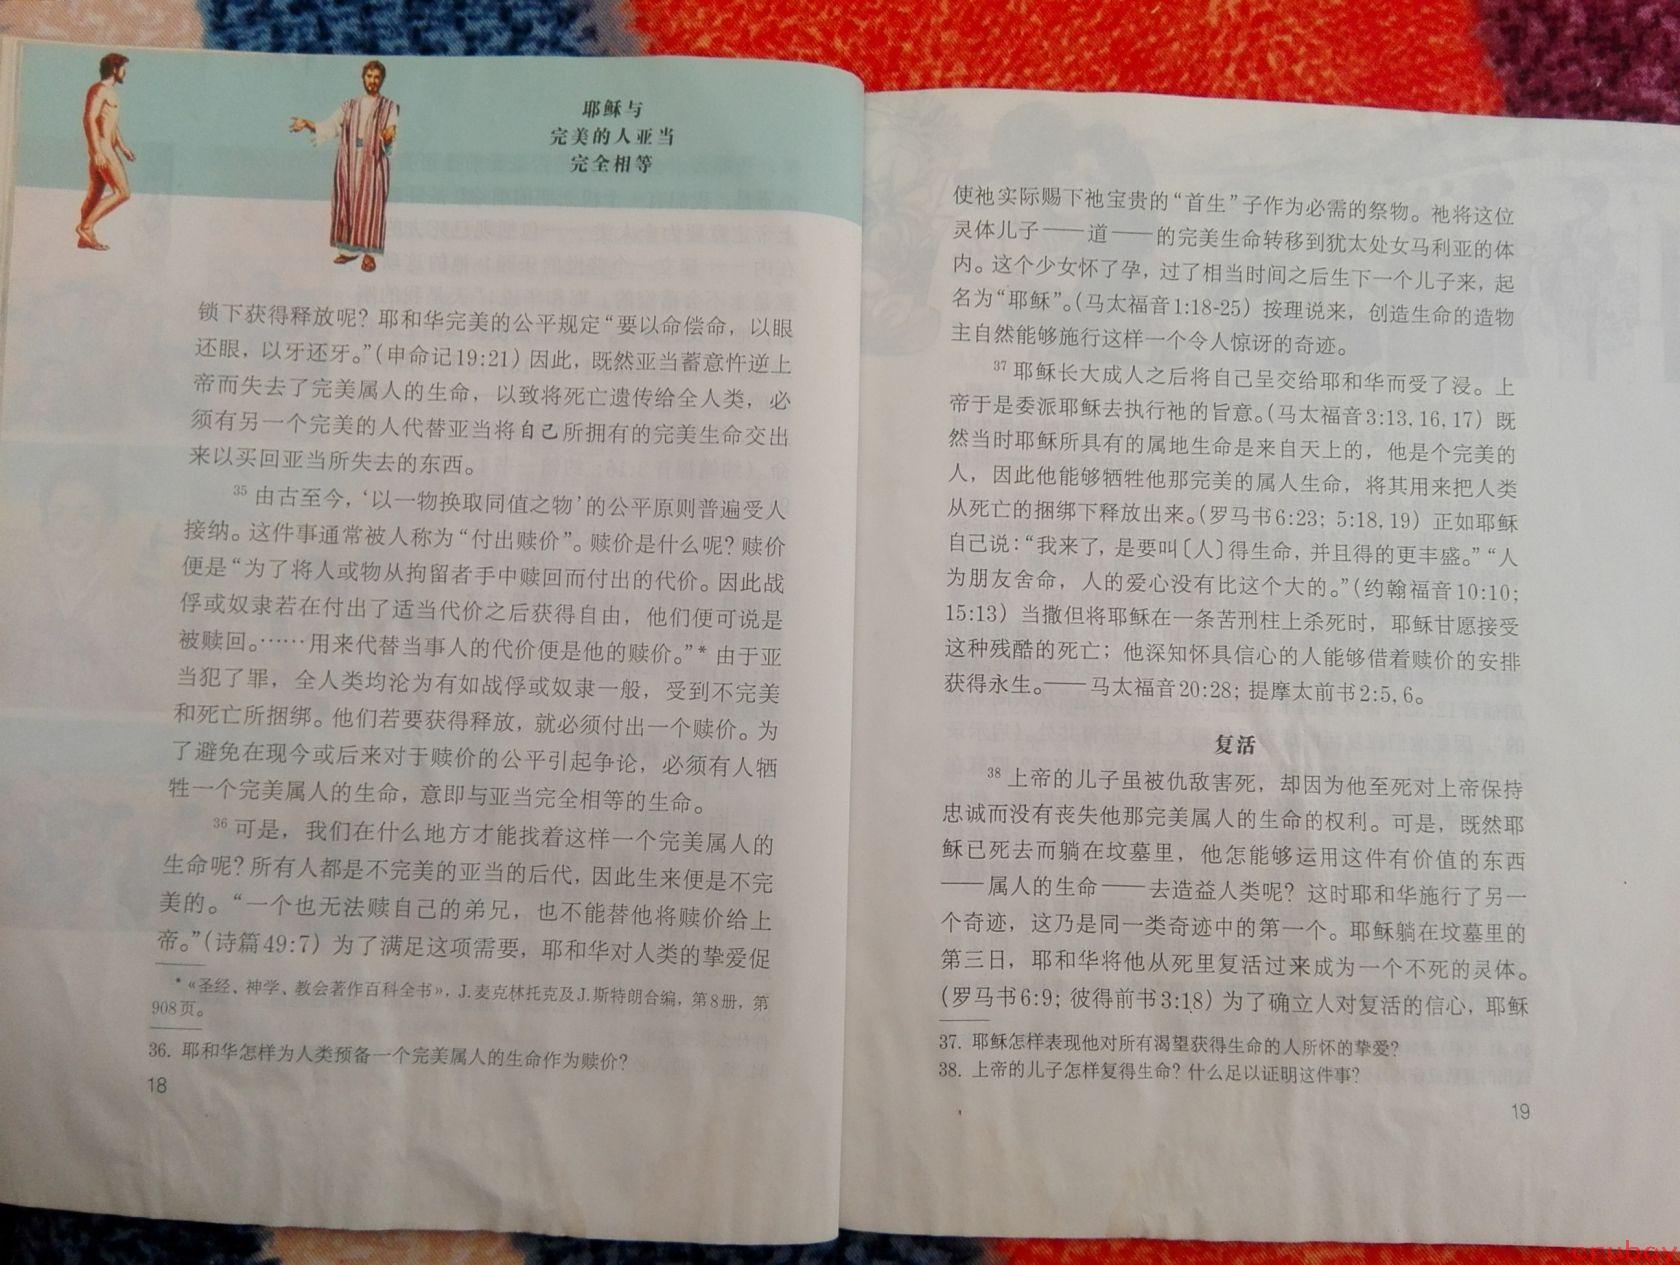 耶稣与
完美的人亚当
完全相等
锁下获得释放呢？耶和华完美的公平规定“要以命偿命，以眼
还眼，以牙还牙。”（申命记19:21）因此，既然亚当蓄意忤逆上
帝而失去了完美属人的生命，以致将死亡遗传给全人类，必
须有另一个完美的人代替亚当将自己所拥有的完美生命交出
来以买回亚当所失去的东西。
35 由古至今，‘以一物换取同值之物’的公平原则普遍受人
接纳。这件事通常被人称为“付出赎价”。赎价是什么呢？赎价
便是“为了将人或物从拘留者手中赎回而付出的代价。因此战
俘或奴隶若在付出了适当代价之后获得自由，他们便可说是
被赎回。……用来代替当事人的代价便是他的赎价。”* 由于亚
当犯了罪，全人类均沦为有如战俘或奴隶一般，受到不完美
和死亡所捆绑。他们若要获得释放，就必须付出一个赎价。为
了避免在现今或后来对于赎价的公平引起争论，必须有人牺
牲一个完美属人的生命，意即与亚当完全相等的生命。
36 可是，我们在什么地方才能找着这样一个完美属人的
生命呢？所有人都是不完美的亚当的后代，因此生来便是不完
美的。“一个也无法赎自己的弟兄，也不能替他将赎价给上
帝。”（诗篇49:7）为了满足这项需要，耶和华对人类的挚爱促
*《圣经、神学、教会著作百科全书》，J.麦克林托克及J.斯特朗合编，第8册，第
908页。
36. 耶和华怎样为人类预备一个完美属人的生命作为赎价？
18
使祂实际赐下祂宝贵的“首生”子作为必需的祭物。祂将这位
灵体儿子——道——的完美生命转移到犹太处女马利亚的体
内。这个少女怀了孕，过了相当时间之后生下一个儿子来，起
名为“耶稣”。（马太福音1:18-25）按理说来，创造生命的造物
主自然能够施行这样一个令人惊讶的奇迹。
37 耶稣长大成人之后将自己呈交给耶和华而受了浸。上
帝于是委派耶稣去执行祂的旨意。（马太福音3:13,16,17）既
然当时耶稣所具有的属地生命是来自天上的，他是个完美的
人，因此他能够牺牲他那完美的属人生命，将其用来把人类
从死亡的捆绑下释放出来。（罗马书6:23; 5:18,19）正如耶稣
自己说：“我来了，是要叫〔人〕得生命，并且得的更丰盛。”“人
为朋友舍命，人的爱心没有比这个大的。”（约翰福音10:10;
15:13）当撒但将耶稣在一条苦刑柱上杀死时，耶稣甘愿接受
这种残酷的死亡；他深知怀具信心的人能够借着赎价的安排
获得永生。——马太福音20:28; 提摩太前书2:5,6。
复活
38 上帝的儿子虽被仇敌害死，却因为他至死对上帝保持
忠诚而没有丧失他那完美属人的生命的权利。可是，既然耶
稣已死去而躺在坟墓里，他怎能够运用这件有价值的东西
——属人的生命——去造益人类呢？这时耶和华施行了另一
个奇迹，这乃是同一类奇迹中的第一个。耶稣躺在坟墓里的
第三日，耶和华将他从死里复活过来成为一个不死的灵体。
（罗马书6:9; 彼得前书3:18）为了确立人对复活的信心，耶稣
37. 耶稣怎样表现他对所有渴望获得生命的人所怀的挚爱？
38. 上帝的儿子怎样复得生命？什么足以证明这件事？
19